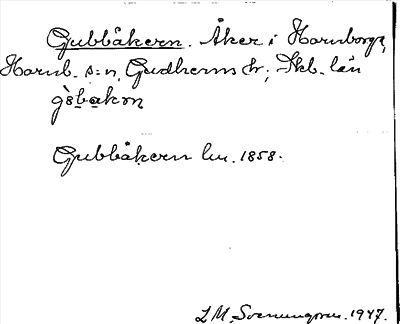 Gubbåkern. Åker i Hornborga,
Hornb. s:n, Gudhems hr, Skb. län
Gubbåkern lm. 1858.
L M. Svenungsson. 1947.